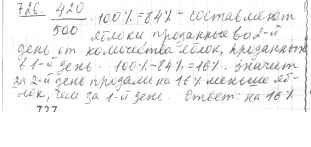 726. 420/500 · 100% = 84% - составляют
яблоки проданные во 2-й
день от количества яблок, проданных
в 1-й день. 100% - 84% = 16%. Значит
за 2-й день продали на 16% меньше яб-
лок, чем за 1-й день. Ответ: на 16%
727